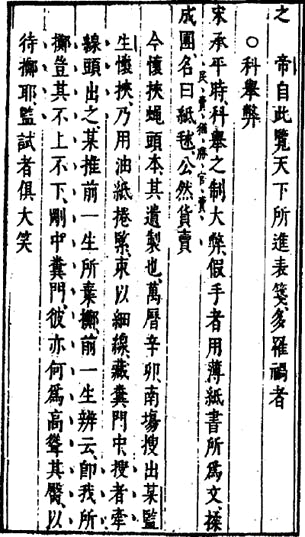 之　帝自此覽天下所進表箋多罹禍者
○科舉弊
宋承平時科舉之制大弊假手者用薄紙書所爲文揉
民賣猶勝官賣
成團名曰紙毬公然貨賣
今懷挾蠅頭本其遺製也萬曆辛卯南塲搜出某監
生懷挾乃用油紙捲緊束以細線藏糞門中搜者牽
線頭出之某推前一生所棄擲前一生辨云卽我所
擲豈其不上不下剛中糞門彼亦何爲高聳其臀以
待擲耶監試者俱大笑